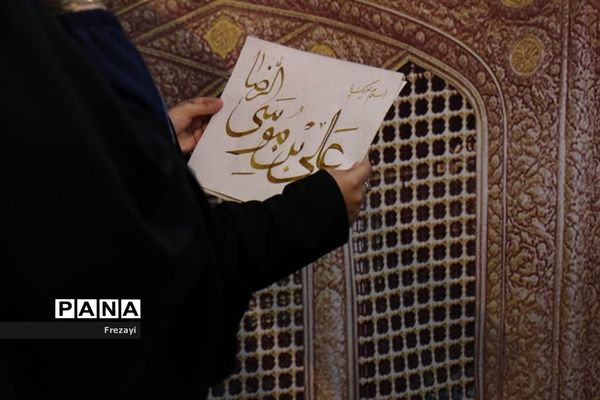 السلام علیک یا
علی بن موسی الرضا
PANA
Frezayi